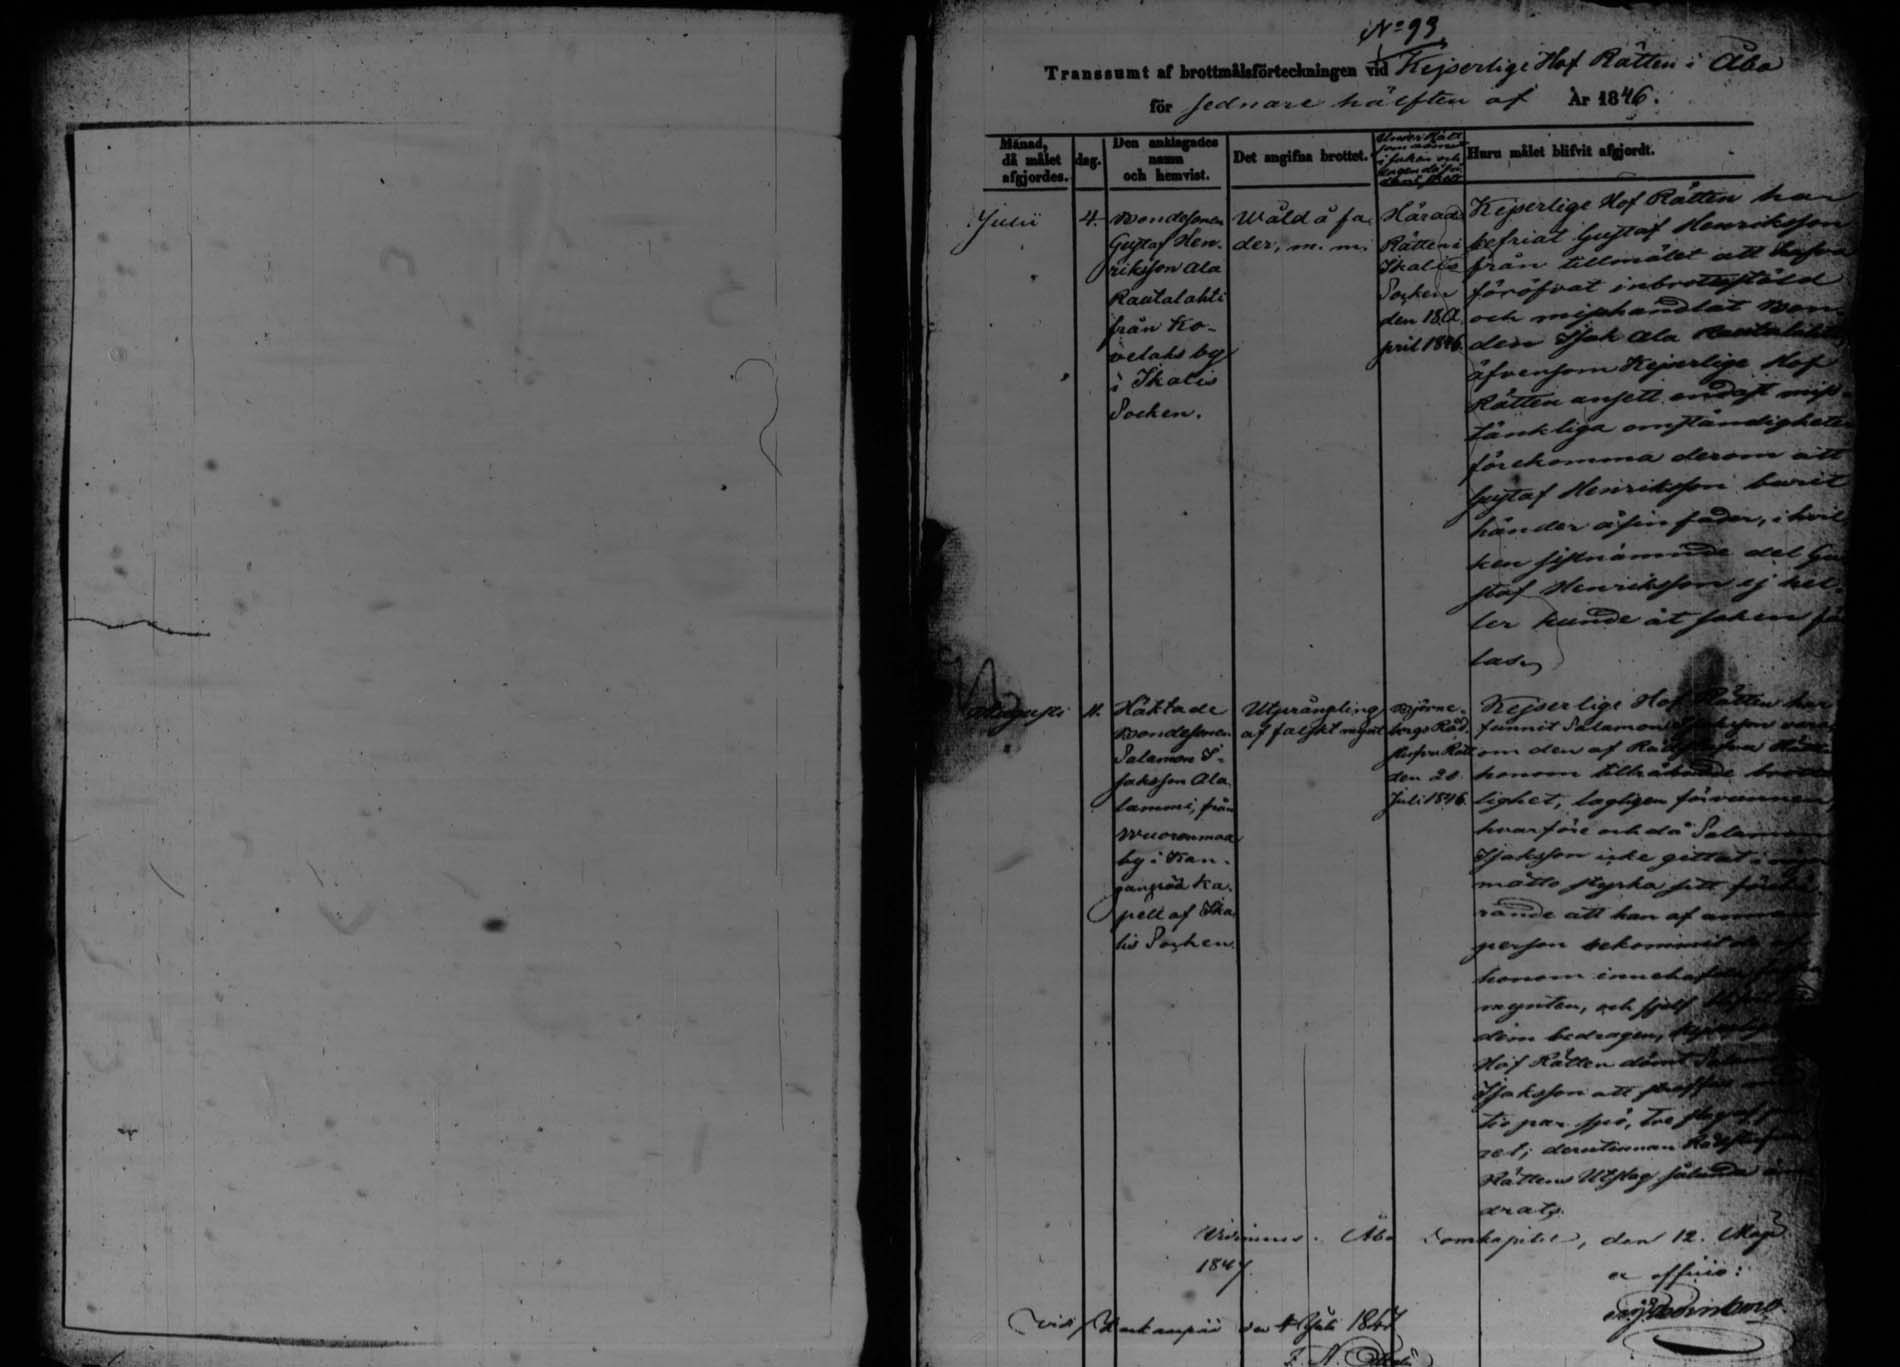 No 93
Transsumt af brottmålsförteckningen vid Kejserlige Hof Rätten i Åbo
för sednare hälften af År 1846.
Månad,
då målet
afgjordes.
dag.
Den anklagades
namn
och hemvist.
Det angifna brottet.
Under Rätt
Huru målet blifvit afgjordt.
Julii
4.
Bondesonen
Gustaf Hen-
riksson Ala
Rautalahti
från Ko-
velaks by
i Ikalis
Socken.
Wåld å fa-
der, m. m.
Härads
Rätten i
Ikalis
Socken
den 18 A-
pril 1846.
Kejserlige Hof Rätten har
befriat Gustaf Henriksson
från tillmälet att hafva
föröfvat inbrottsstöld
och misshandlat Bon-
den Isak Ala Rautalahti
äfvensom Kejserlige Hof
Rätten ansett endast miss-
tänkliga omständigheter
förekomma derom att
Gustaf Henriksson burit
händer å sin fader, i hvil
ken sistnämnde del Gu
staf Henriksson ej hel-
ler kunde åt saken fäl
las.
Augusti
11.
Häktade
Bondesonen
Salamon I-
saksson Ala
lammi, från
Wuorenmaa
by i Kan-
ganpää Ka-
pell af Ika
lis Socken.
Utprångling
af falskt mynt
Björne-
borgs Råd-
stufvu Rätt
den 20
Juli 1846.
Kejserlige Hof Rätten har
funnit Salamon Isaksson vara
om den af Rådstufvu Rätten
honom tillräknade brotts
lighet, lagligen förvunnen,
hvarföre och då Salamon
Isaksson icke gittat i någon
måtto styrka sitt föreba-
rande att han af annan
person bekommit de af
honom innehafda
mynten, och sjelf
dem bedragen, Kejserlige
Hof Rätten dömt Salamon
Isaksson att straffas med
tio par spö, tre slag af pa
ret; derutinnan Rådstufvu
Rättens Utslag sålunda än
drats.
Vidimeras. Åbo Domkapitel, den 12. Maji
1847.
ex officio:
Vidi den 4 Juli 1847